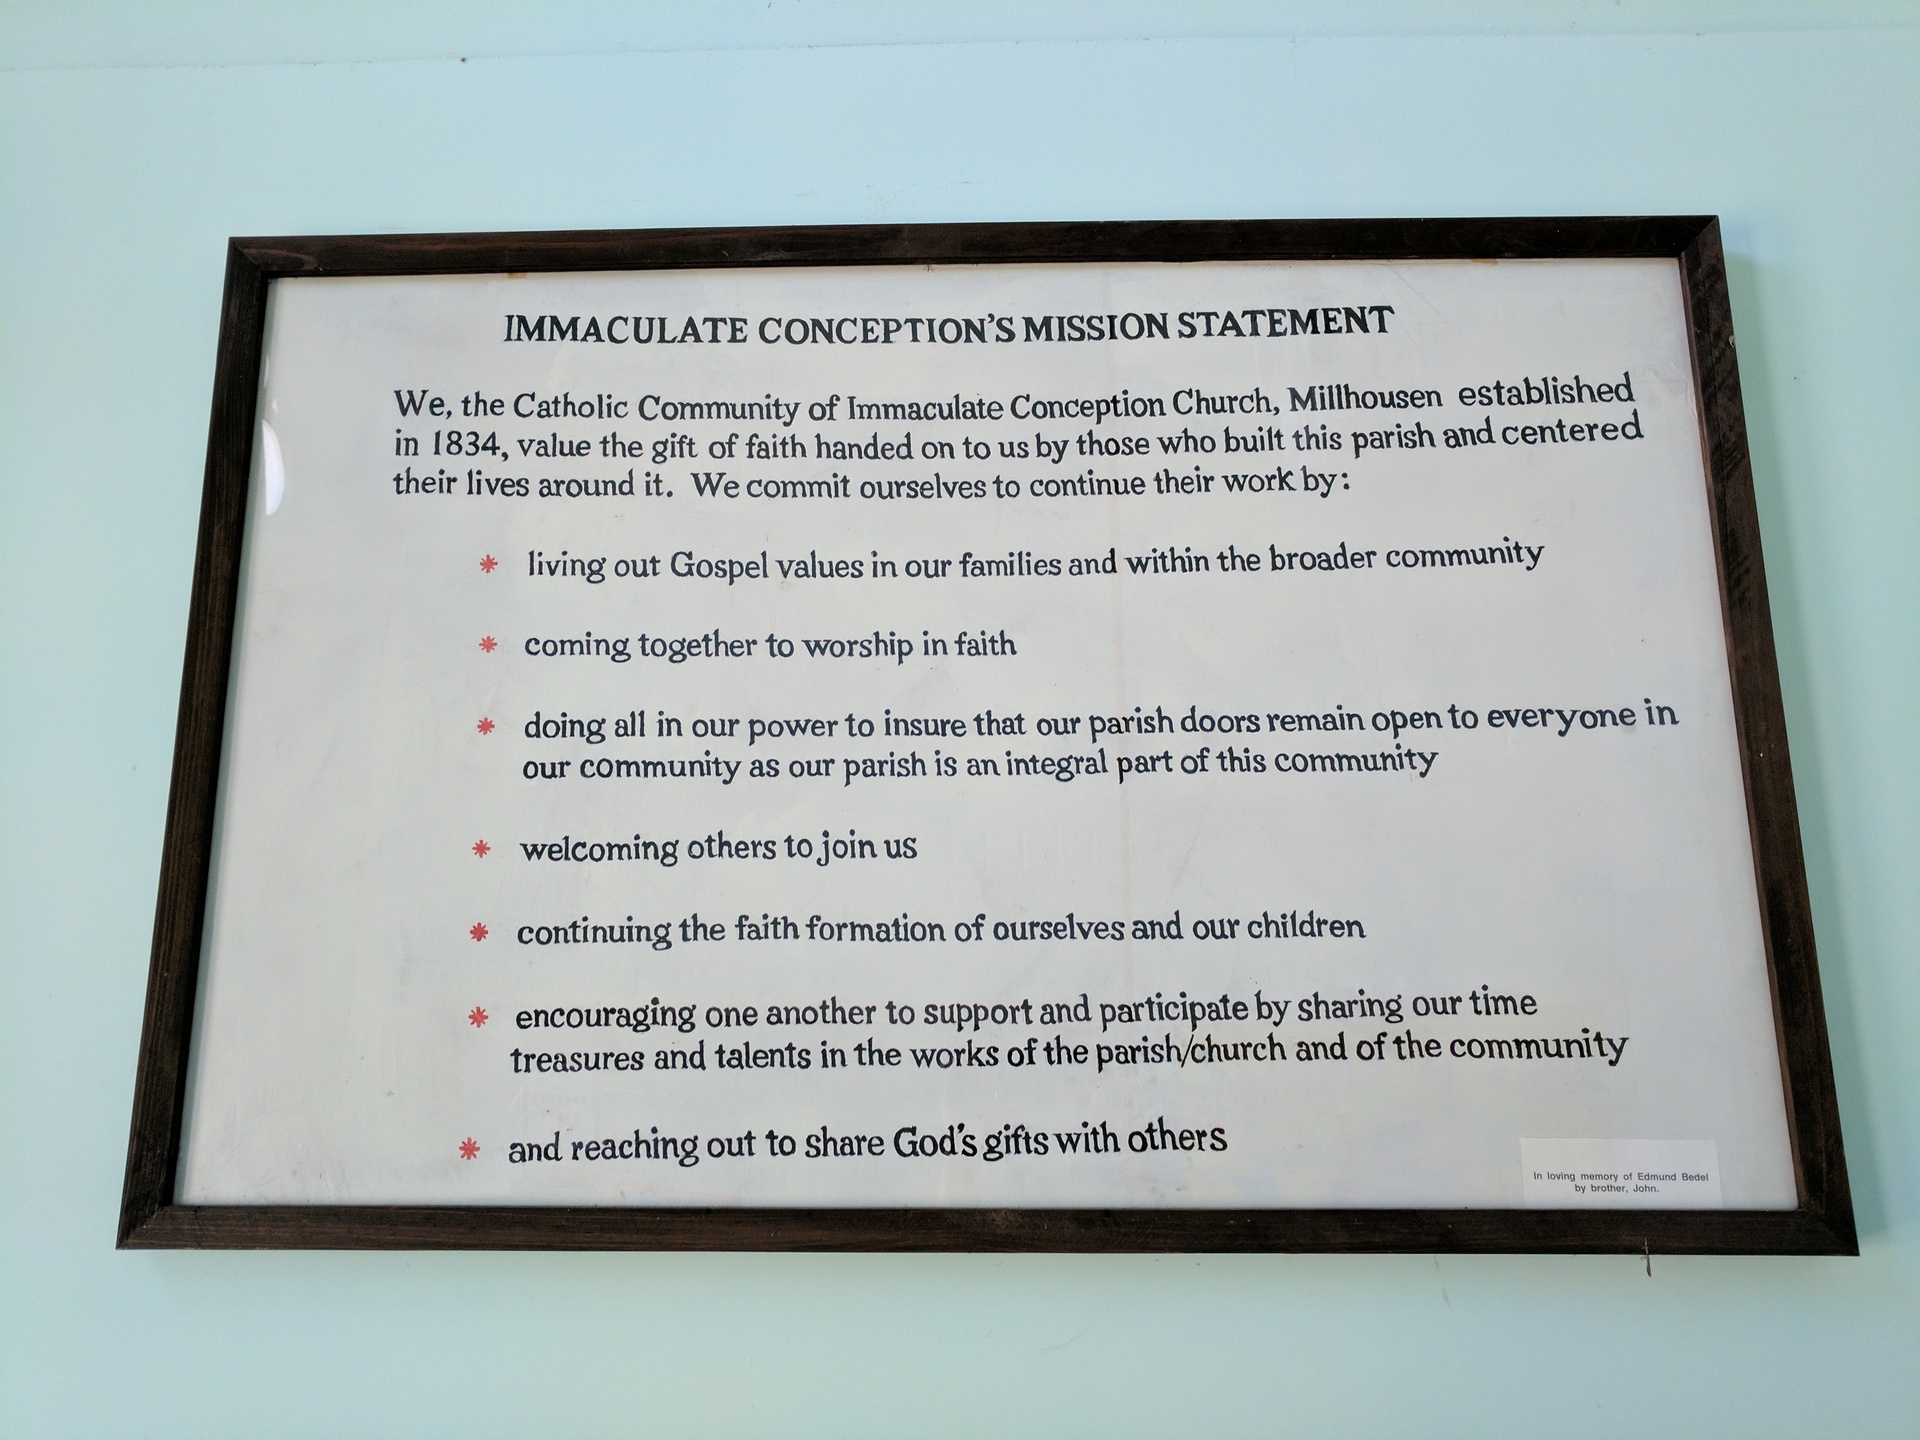 IMMACULATE CONCEPTION'S MISSION STATEMENT
We, the Catholic Community of Immaculate Conception Church, Millhousen established
in 1834, value the gift of faith handed on to us by those who built this parish and centered
their lives around it. We commit ourselves to continue their work by:
* living out Gospel values in our families and within the broader community
* coming together to worship in faith
* doing all in our power to insure that our parish doors remain open to everyone in
our community as our parish is an integral part of this community
* welcoming others to join us
* continuing the faith formation of ourselves and our children
* encouraging one another to support and participate by sharing our time
treasures and talents in the works of the parish/church and of the community
* and reaching out to share God's gifts with others
In loving memory of Edmund Bedel
by brother, John.